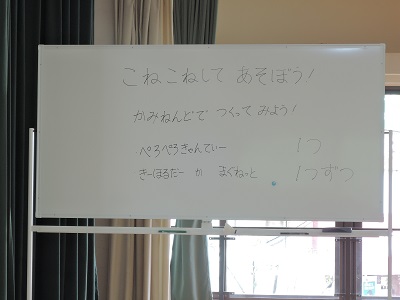 こねこねして あそぼう!
かみねんどで つくって みよう!
ぺろぺろきゃんでぃー 1つ
きーほるだー か まぐねっと 1つずつ